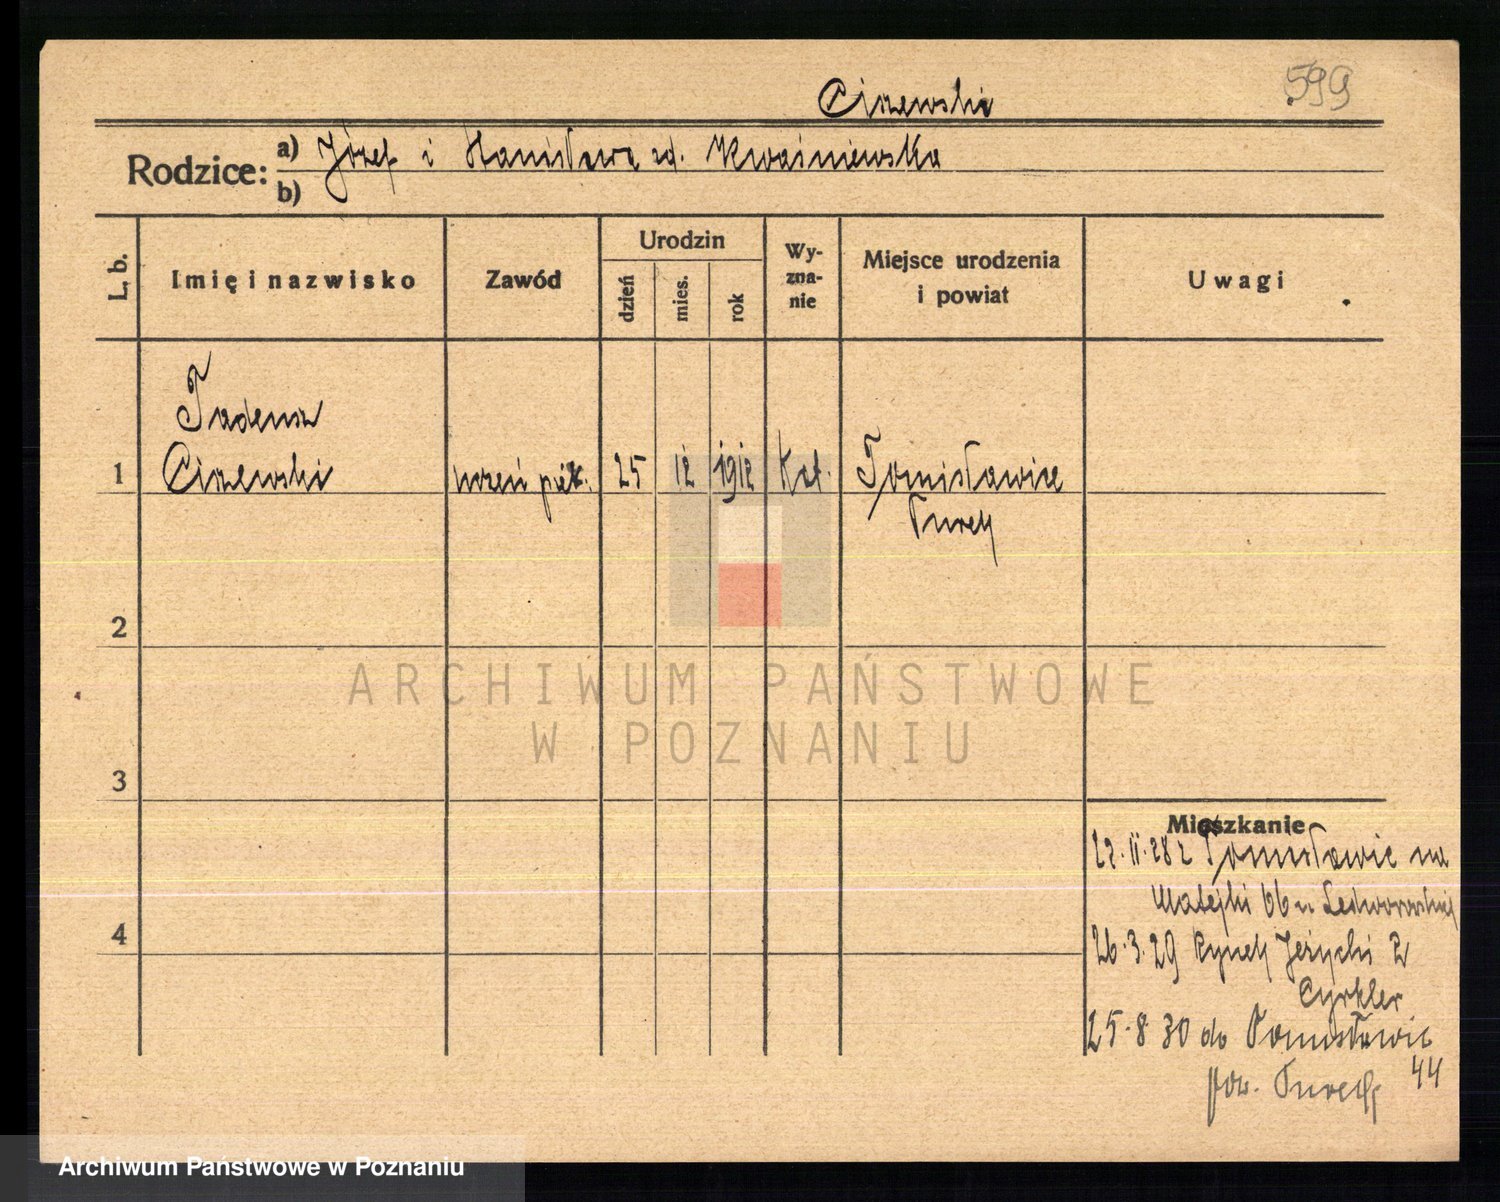 599
Ciszewski
Rodzice: a) Józef i Stanisława zd. Kwaśniewska
b)
L. b.
Imię i nazwisko
Zawód
Urodzin
dzień
mies.
rok
Wy-
zna-
nie
Miejsce urodzenia
i powiat
Uwagi
Tadeusz
1 Ciszewski uczeń piek. 25 12 1912 Kat. Tomisławice
Turek
2
ARCHIWUM PAŃSTWOWE
W POZNANIU
3
Mieszkanie
22.11.28 z Tomisławic na
Matejki 66 u
4
26.3.29 Rynek Jeżycki 2
Cyrkler
25.8.30 do Tomisławic
44
pow. Turek
Archiwum Państwowe w Poznaniu